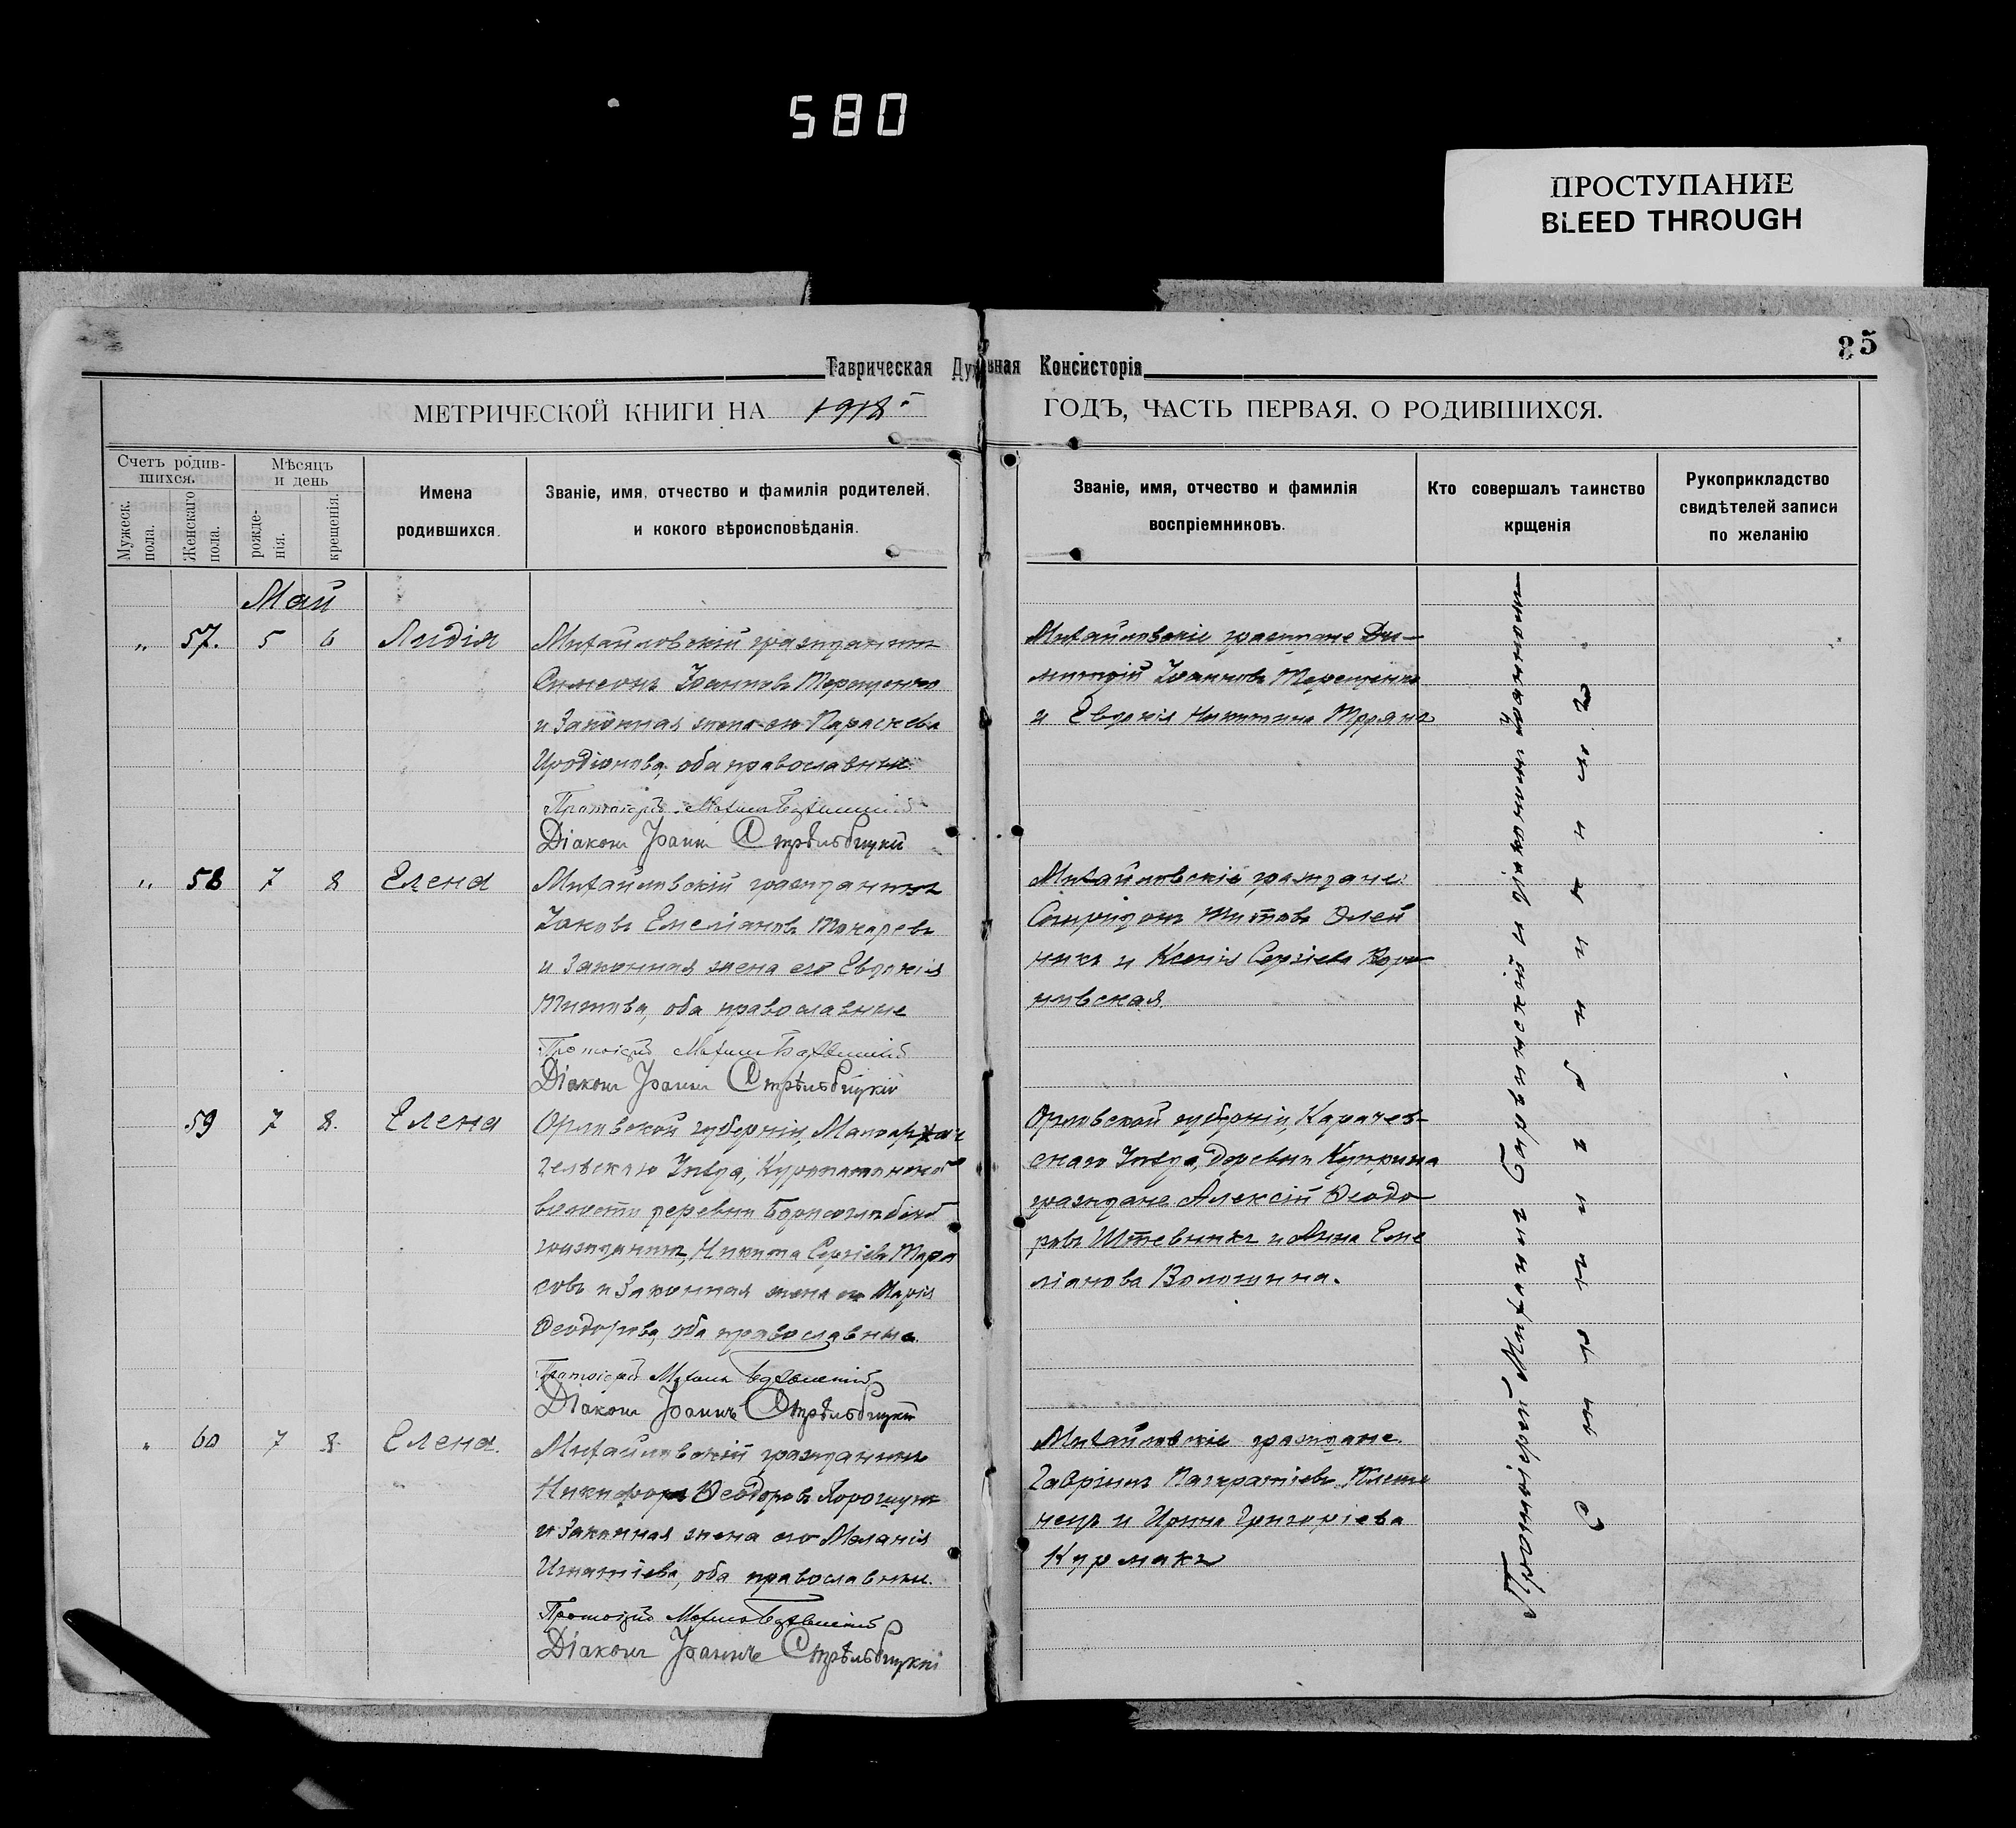 580
ПРОСТУПАНИЕ
BLEED THROUGH
85
Таврическая Духовная Консисторія
МЕТРИЧЕСКОЙ КНИГИ НА 1918
ГОДЪ, ЧАСТЬ ПЕРВАЯ, О РОДИВШИХСЯ.
Счетъ родив-
шихся.
Мужеск.
пола.
Женскаго
пола.
Мѣсяцъ
и день
рожде-
нія.
крещенія.
Имена
родившихся.
Званіе, имя, отчество и фамилія родителей,
и кокого вѣроисповѣданія.
Званіе, имя, отчество и фамилія
воспріемниковъ.
Кто совершалъ таинство
крщенія
Рукоприкладство
свидѣтелей записи
по желанію
Май
„ 57. 5 6 Лидія
Михайловскій гражданинъ
Симеонъ Іоанновъ Терещенко
и законная жена его Параскева
Иродіонова, оба православные.
Протоіерей Михаилъ
Діаконъ Іоаннъ Стрѣльбицкій
Михайловскіе граждане Ди-
митрій Іоанновъ Терещенко
и Евдокія Никитина Троянъ
„ 58 7 8 Елена
Михайловскій гражданинъ
Іаковъ Емеліановъ Токаревъ
и законная жена его Евдокія
Титова, оба православные
Протоіерей Михаилъ
Діаконъ Іоаннъ Стрѣльбицкій
Михайловскіе граждане
Спиридонъ Титовъ Олей
никъ и Ксенія Сергіева
59 7 8. Елена
Орловской губерніи, Малоархан
гельскаго Уѣзда,
волости деревни
гражданинъ, Никита Сергіевъ Тара
совъ и законная жена его Марія
Ѳеодорова, оба православные.
Протоіерей Михаилъ
Діаконъ Іоаннъ Стрѣльбицкій
Орловской губерніи, Карачев-
скаго Уѣзда, деревни
граждане Алексій Ѳеодо-
ровъ и Анна Еме
ліанова Волошина.
„ 60 7 8. Елена.
Михайловскій гражданинъ
Никифоръ Ѳеодоровъ
и законная жена его Меланія
Игнатіева, оба православные.
Протоіерей Михаилъ
Діаконъ Іоаннъ Стрѣльбицкій
Михайловскіе граждане
Гавріилъ Панкратіевъ Клеме
нецъ и Ирина Григоріева
Курмакъ
Протоіерей Михаилъ и діакономъ Іоанномъ
Стрѣльбицкій